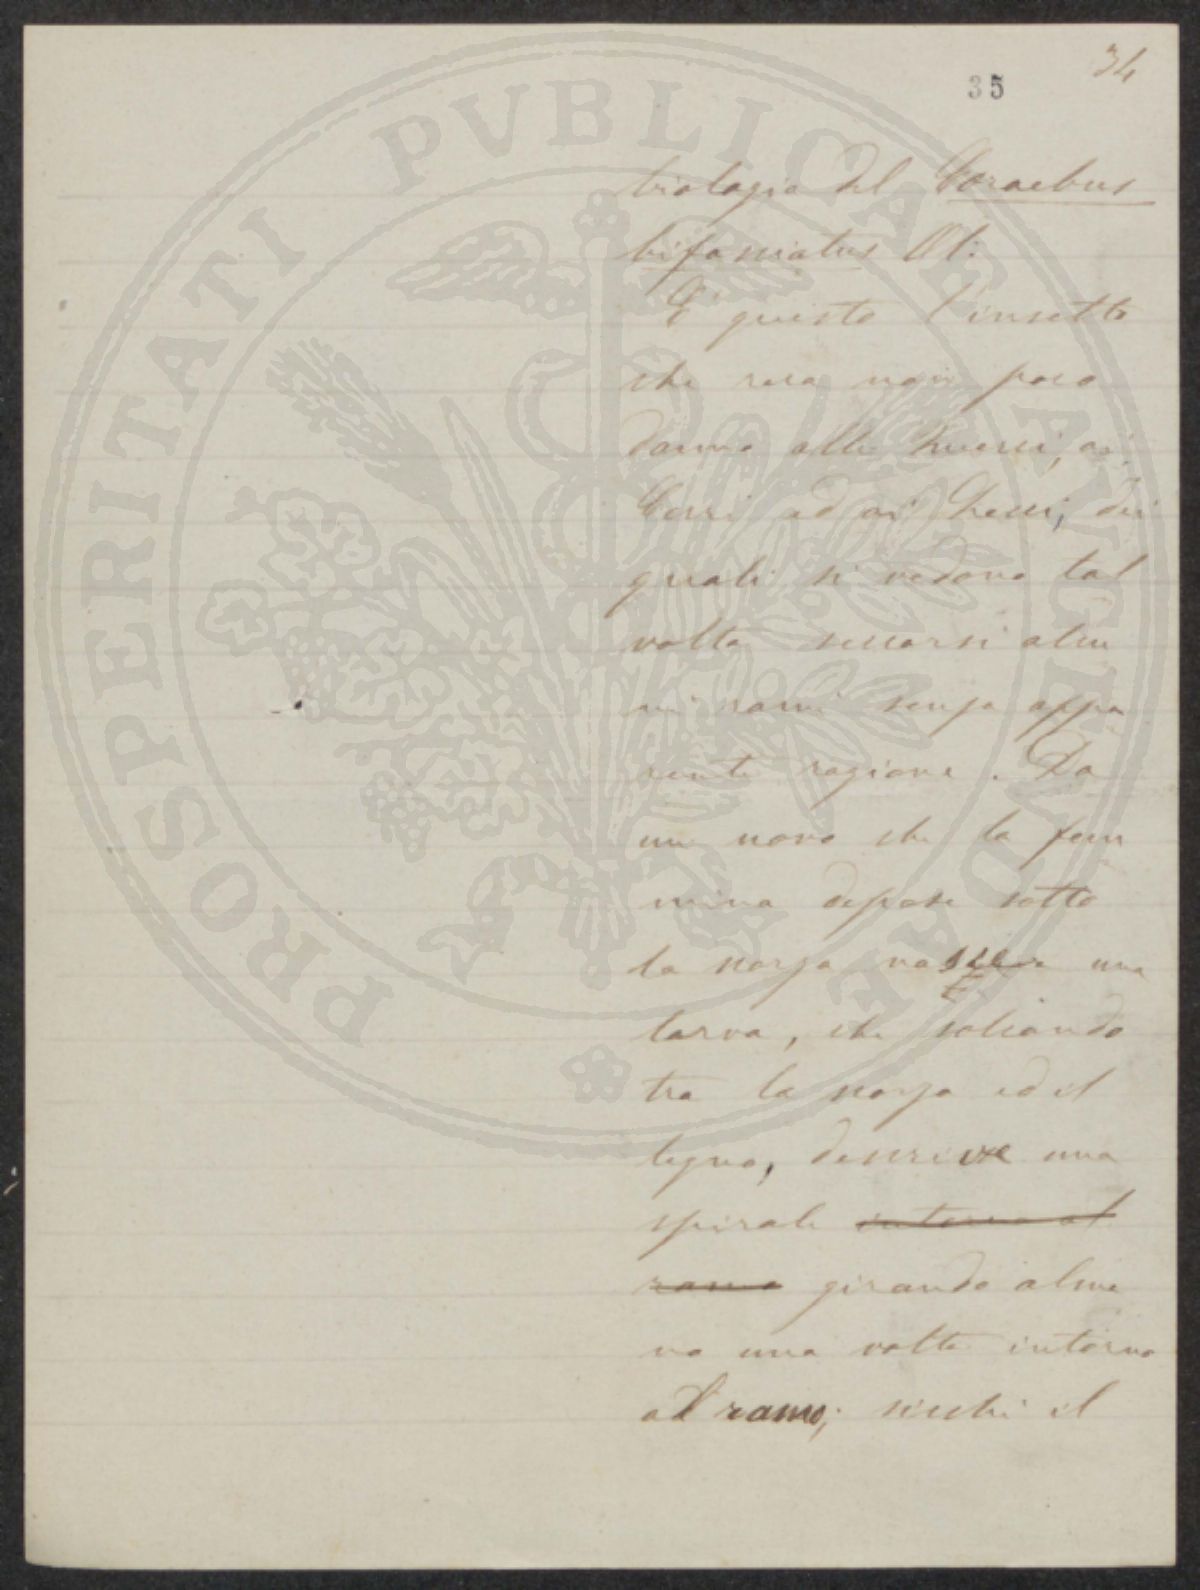 34
35
biologia del Coraebus
bifasciatus Ol:
E' questo l'insetto
che reca non poco
danno alle Querci, ai
Cerri ed ai Lecci, dei
quali si vedono tal
volta seccarsi alcu
ni rami senza appa
rente ragione. Da
un uovo che la fem
mina depose sotto
la scorza nasce una
larva, che scavando
tra la scorza ed il
legno, descrive una
spirale intorno al
ramo girando alme
no una volta intorno
al ramo; sicchè il
PROSPERITATI PVBLICAE AVGENDAE